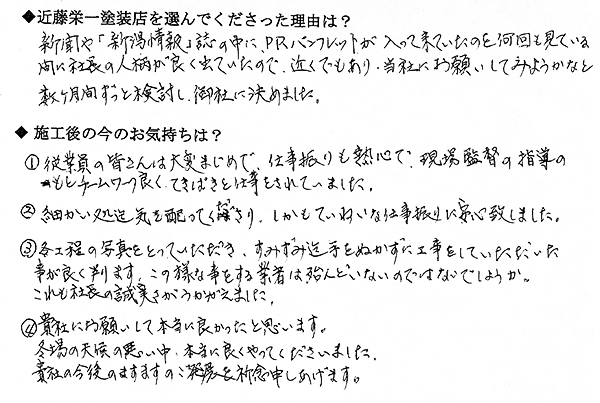 ◆近藤栄一塗装店を選んでくださった理由は？
新聞や「新潟情報」誌の中に、PRパンフレットが入って来ていたのを何回も見ている
間に社長の人柄が良く出ていたので、近くでもあり、当社にお願いしてみようかなと
数ヶ月間ずっと検討し、御社に決めました。
◆ 施工後の今のお気持ちは？
①従業員の皆さんは大変まじめで、仕事振りも熱心で、現場監督の指導の
もとチームワーク良く、てきぱきと仕事をされていました。
②細かい処迄気を配ってくださり、しかもていねいな仕事振りに安心致しました。
③各工程の写真をとっていただき、すみずみ迄手をぬかずに工事をしていただいた
事が良く判ります。この様な事をする業者は殆んどいないのではないでしょうか。
これも社長の誠実さがうかがえました。
④貴社にお願いして本当に良かったと思います。
冬場の天候の悪い中、本当に良くやってくださいました。
貴社の今後のますますのご発展を祈念申しあげます。